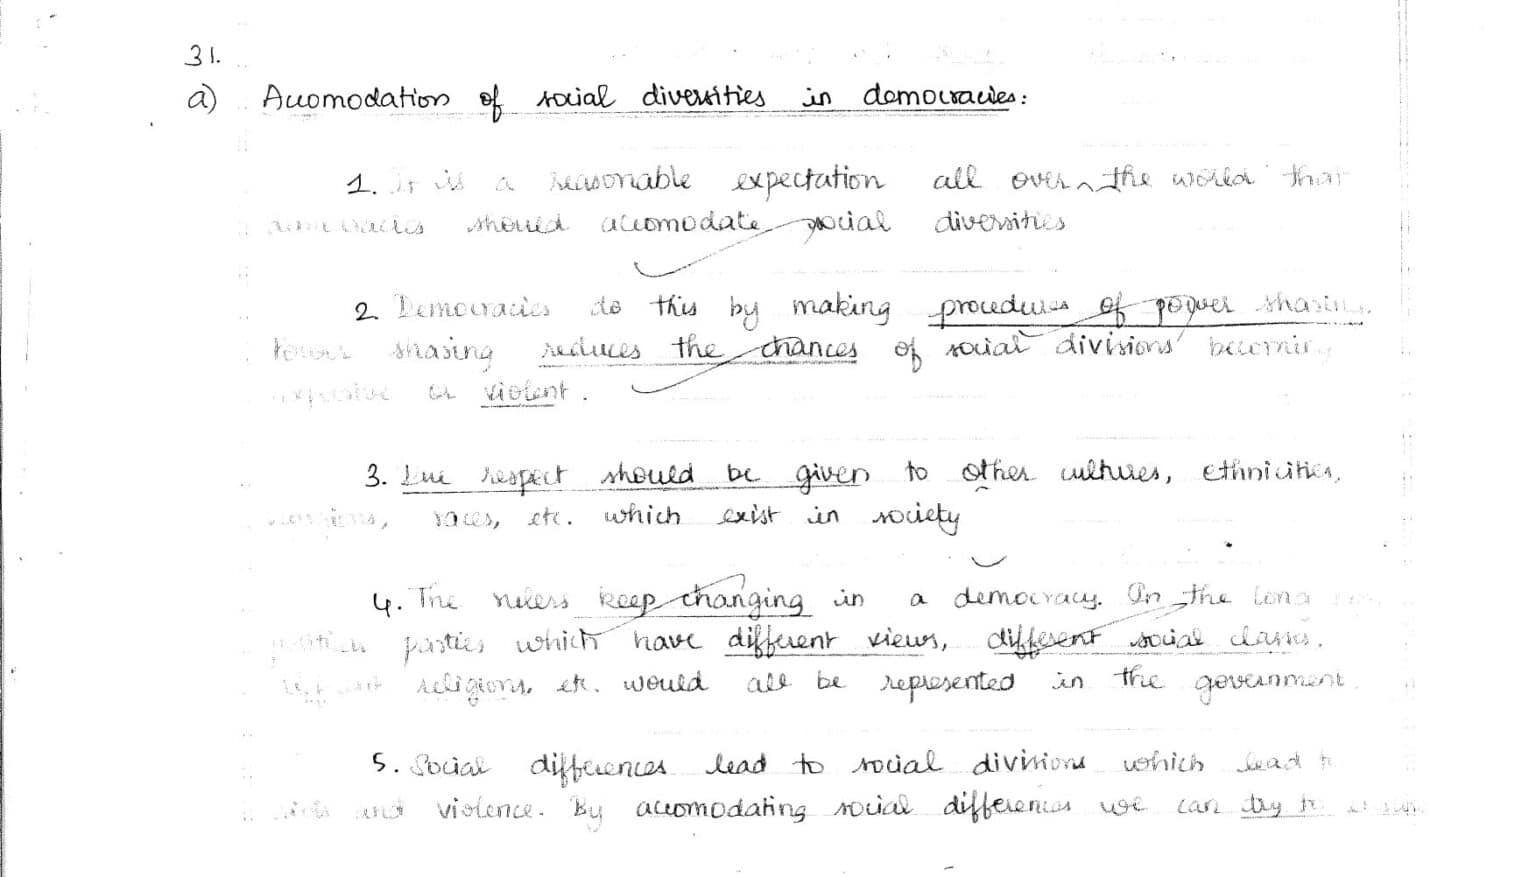 31.
a) Accomodation of social diversities in democracies:
1. It is a reasonable expectation all over the world that
democracies should accomodate social diversities
2. Democracies do this by making procedures of power sharing.
Power sharing reduces the chances of social divisions becoming
explosive or violent.
3. Due respect should be given to other cultures, ethnicities,
religions, races, etc. which exist in society
4. The rulers keep changing in a democracy. In the long run,
political parties which have different views, different social classes,
different religions, etc. would all be represented in the government
5. Social differences lead to social divisions which lead to
and violence. By accomodating social differences we can try to